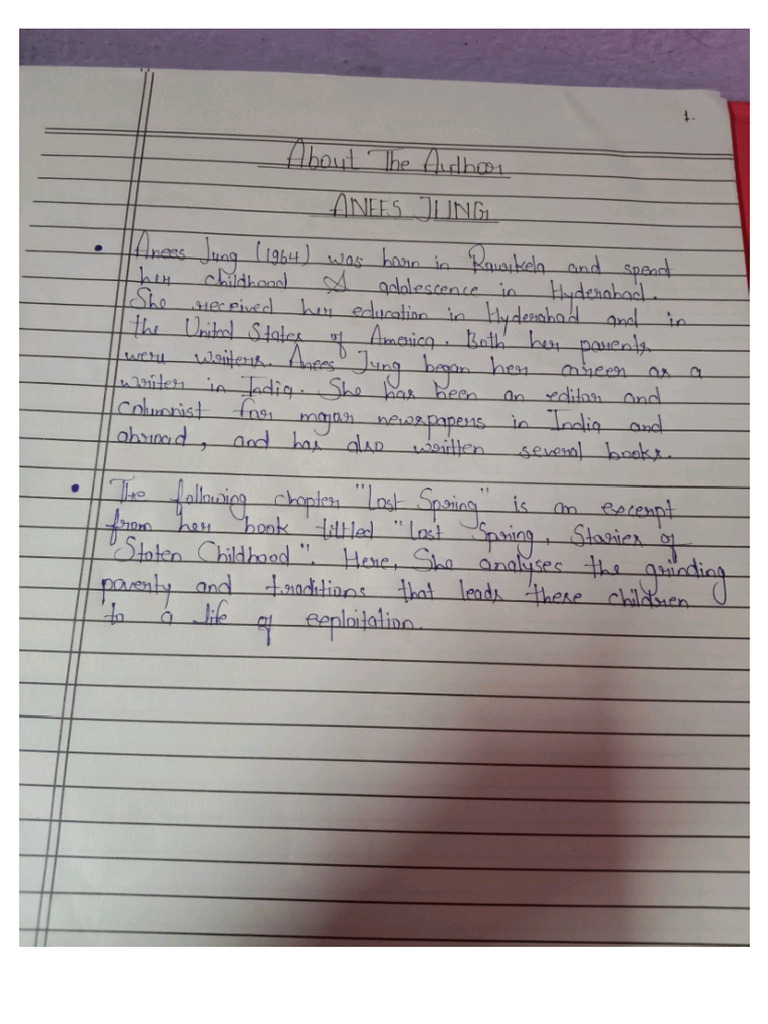 1.
About The Author
ANEES JUNG
• Anees Jung (1964) was born in Raurkela and spend
her childhood & adolescence in Hyderabad.
She received her education in Hyderabad and in
the United States of America. Both her parents
were writers. Anees Jung began her career as a
writer in India. She has been an editor and
columnist for major newspapers in India and
abroad, and has also written several books.
• The following chapter "Lost Spring" is an excerpt
from her book tittled "Lost Spring, Stories of
Stolen Childhood". Here, She analyses the grinding
poverty and traditions that leads these children
to a life of exploitation.